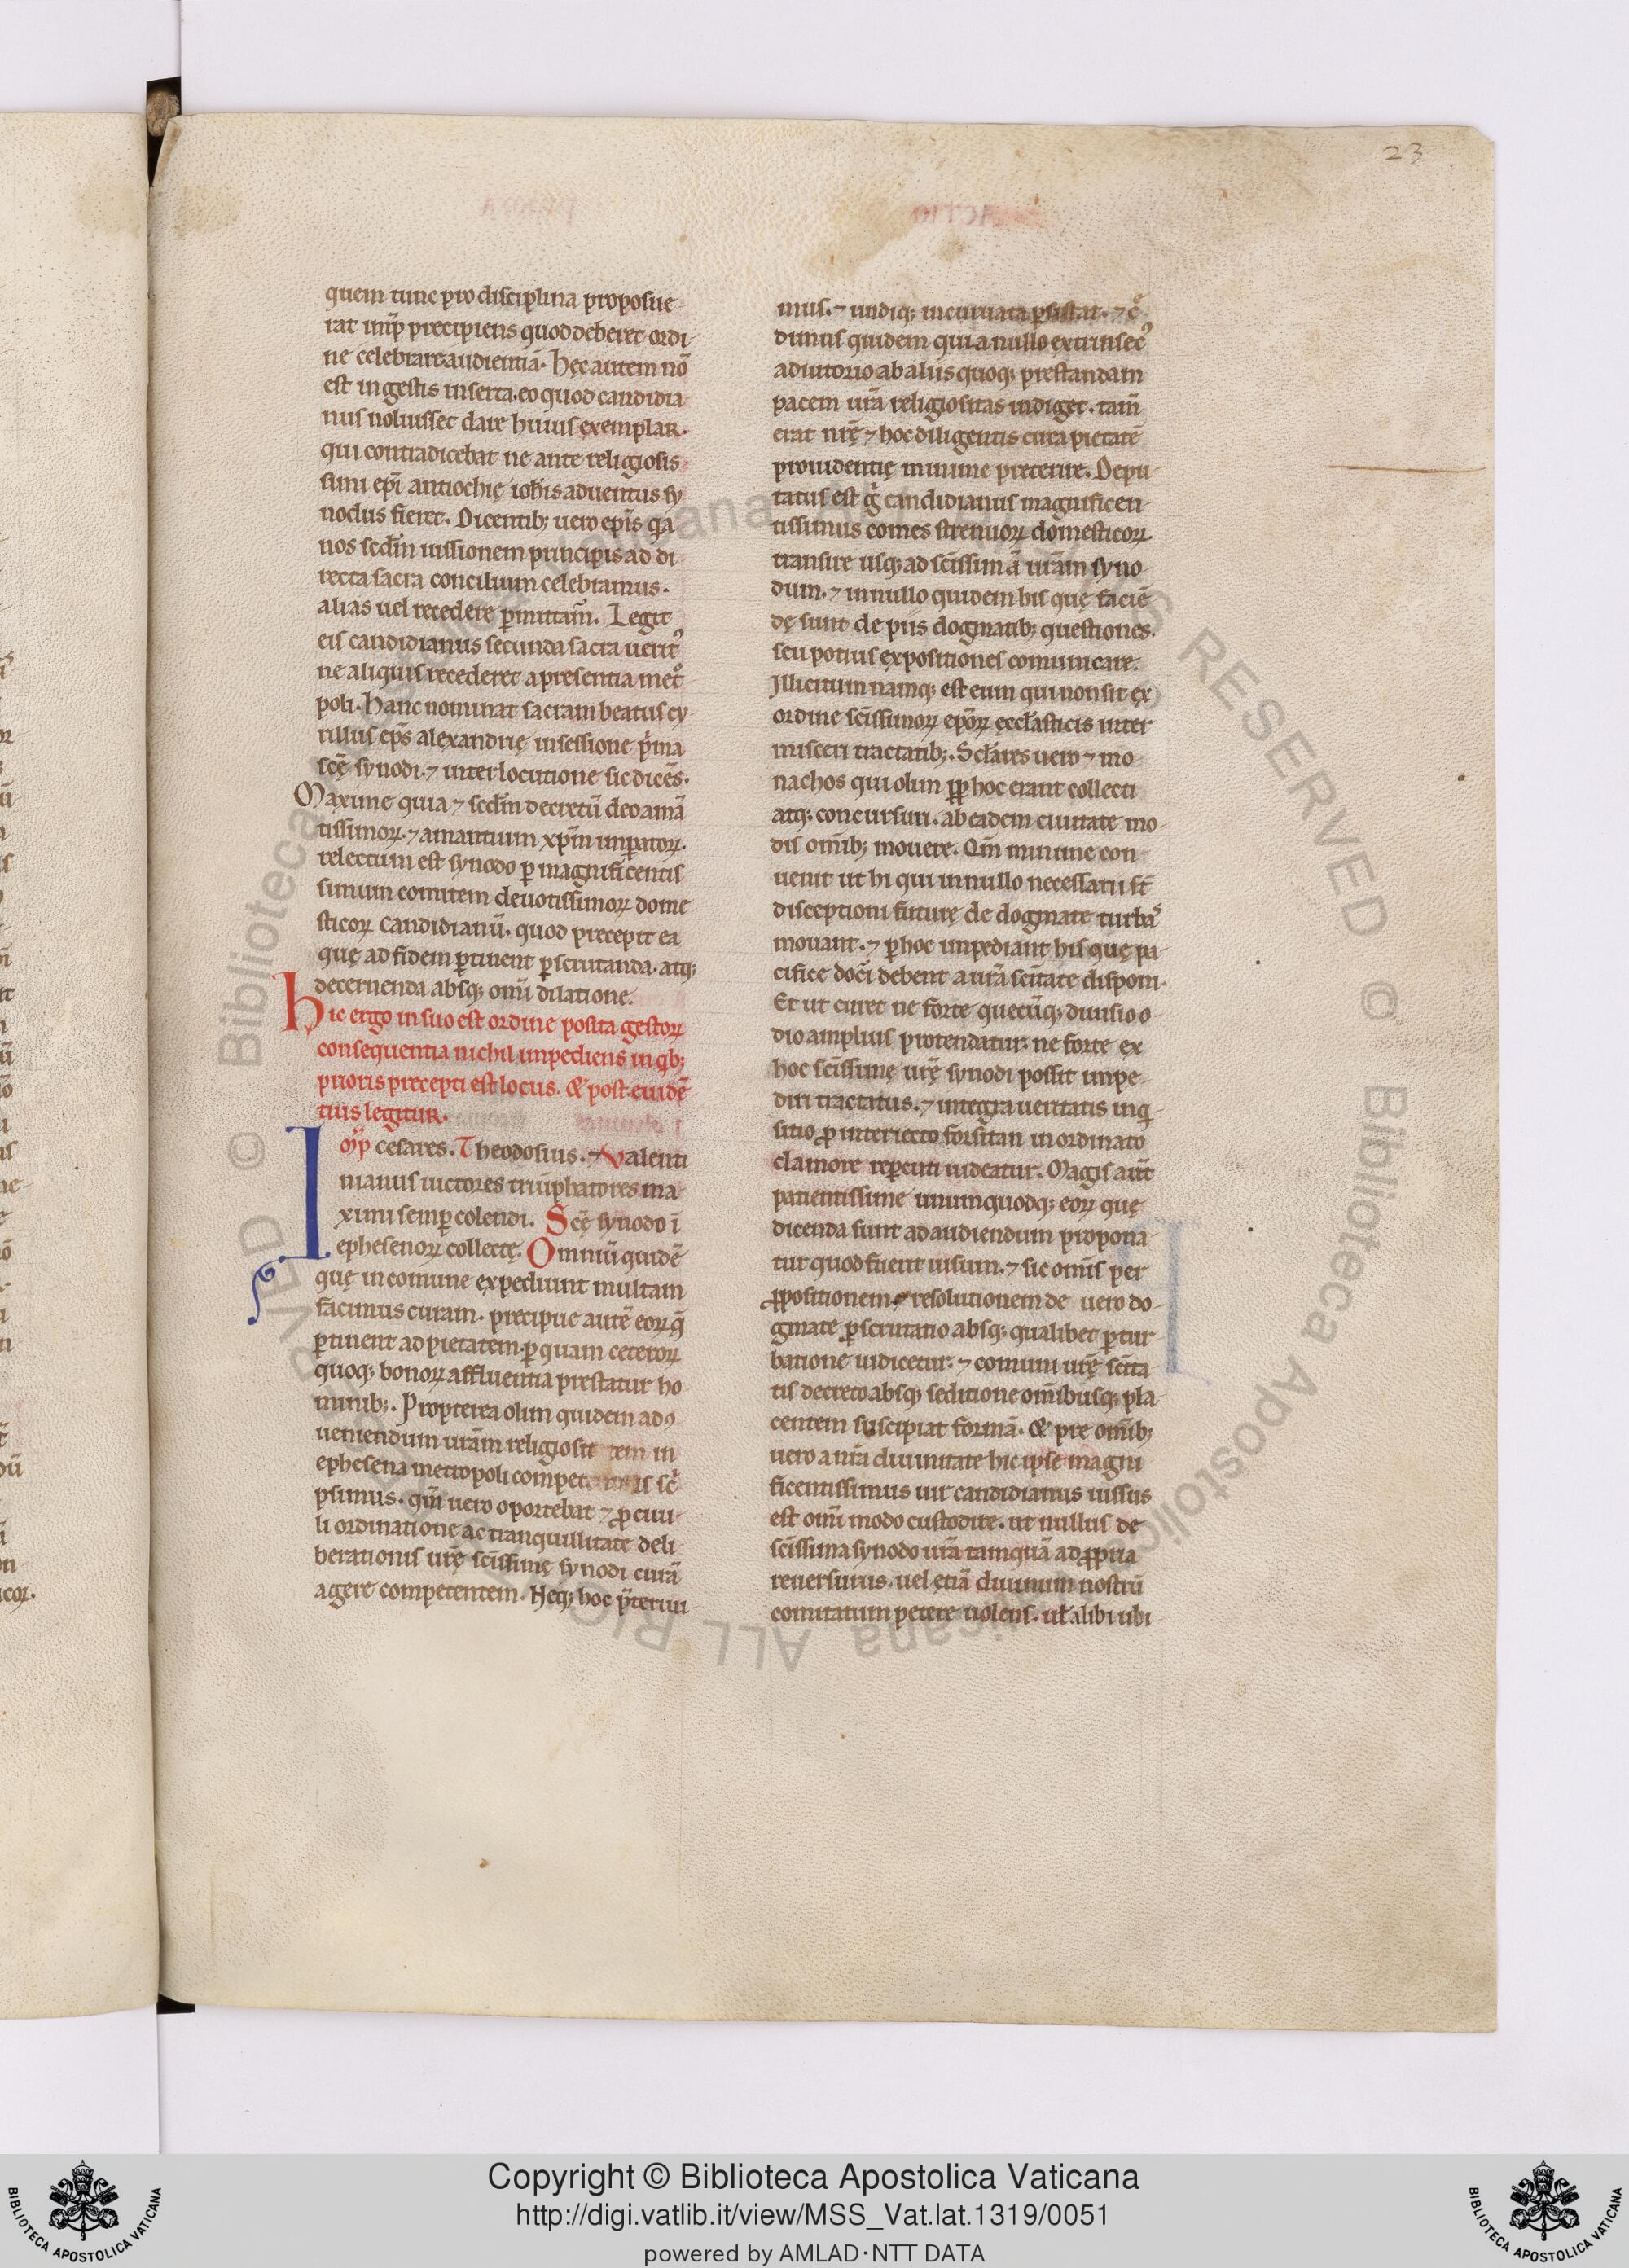 23
quem tunc pro disciplina proposue
rat imp̄ precipiens quod deberet ordi
ne celebrare audientiā. hęc autem nō
est in gestis inserta. eo quod candidia
nus noluisset dare huius exemplar.
qui contradicebat ne ante religiosis
simi ep̄i antiochię ioh̄is aduentus sy
nodus fieret. Dicentib; uero ep̄is q̄a
nos sc̄dm iussionem principis ad di
recta sacra concilium celebramus.
alias uel recedere ꝑmittam̄. Legit
eis candidianus secunda sacra
ne aliquis recederet a presentia met̊
poli. Hanc nominat sacram beatus cy
rillus ep̄s alexandrię in sessione p̄ma
sc̄ę synodi. ⁊ interlocutione sic dicēs.
Maxime quia ⁊ sc̄dm decretū deo amā
tissimoꝝ. ⁊ amantium xp̄m imꝑatoꝝ.
relectum est synodo ꝑ magnificentis
simum comitem deuotissimoꝝ dome
sticoꝝ candidianū. quod precepit ea
quę ad fidem ꝑtinent ꝑscrutanda. atq;
decernenda absq; omi dilatione.
Hic ergo in suo est ordine posita gestoꝝ
consequentia nichil impediens in qb;
prioris precepti est locus. & post euidē
tius legitur.
Imp̄ cesares. Theodosius. ⁊ Valenti
nianus uictores triūphatores ma
ximi semꝑ colendi. Scę synodo ī
ephesenoꝝ collectę. Omniū quidē
quę in comune expediunt multam
facimus curam. precipue autē eoꝝ q̄
ꝑtinent ad pietatem. ꝑ quam ceteroꝝ
quoq; bonoꝝ affluentia prestatur ho
minib;. Propterea olim quidem ad ꝯ
ueniendum urām religiosit tem in
ephesena metropoli sc̄
psimus. qm̄ uero oportebat ⁊ ꝓ ciui
li ordinatione ac tranquillitate deli
berationis urę̄ sc̄issimę synodi curā
agere competentem. Neq; hoc p̄terııı
mus. ⁊ undiq; incuruata ꝑsistat. ⁊ c̄
dimus quidem quia nullo extrinsec̓
adiutorio ab aliis quoq; prestandam
pacem urā religiositas indiget. tam̄
erat nrę̄ ⁊ hoc diligentis cura pietatē
prouidentię minime preterire. Depu
tatus est g̊ candidianus magnificen
tissimus comes strenuoꝝ domesticoꝝ
transire usq; ad sc̄issimā urām syno
dum. ⁊ in nullo quidem his quę faciē
dę sunt de piis dogmatib; questiones.
seu potius expositiones comunicare.
Illicitum namq; est eum qui non sit ex
ordine sc̄issimoꝝ ep̄oꝝ eccl̄asticis inter
misceri tractatib;. Sc̄lares uero ⁊ mo
nachos qui olim ꝓꝑ hoc erant collecti
atq; concursuri. ab eadem ciuitate mo
dis omīb; mouere. Qm̄ minime con
uenit ut hi qui in nullo necessarii st̄
disceptioni futurę de dogmate turbas
moueant. ⁊ ꝑ hoc impediant his quę pa
cifice doc̄i debent a urā sc̄itate disponi.
Et ut curet ne forte quecūq; diuisio o
dio amplius protendatur. ne forte ex
hoc sc̄issimę urę̄ synodi possit impe
diri tractatus. ⁊ integra ueritatis inq̇
sitio ꝓ interiecto forsitan in ordinato
clamore reꝑcuti uideatur. Magis aūt
patientissime unumquodq; eoꝝ quę
dicenda sunt ad audiendum propona
tur quod fuerit uisum. ⁊ sic om̄is per
ꝓpositionem ⁊ resolutionem de uero do
gmate ꝑscrutatio absq; qualibet ꝑtur
batione iudicetur. ⁊ comuni urę̄ sc̄ita
tis decreto absq; seditione omībusq; pla
centem suscipiat formā. & pre omīb;
uero a nrā diuinitate hic ipse magni
ficentissimus uir candidianus iussus
est omi modo custodire. ut nullus de
sc̄issima synodo urā tamquā ad ꝓpria
reuersurus. uel etiā diuinum nostrū
comitatum petere uolens. ul̄ alibi ubi
Copyright © Biblioteca Apostolica Vaticana
http://digi.vatlib.it/view/MSS_Vat.lat.1319/0051
powered by AMLAD·NTT DATA